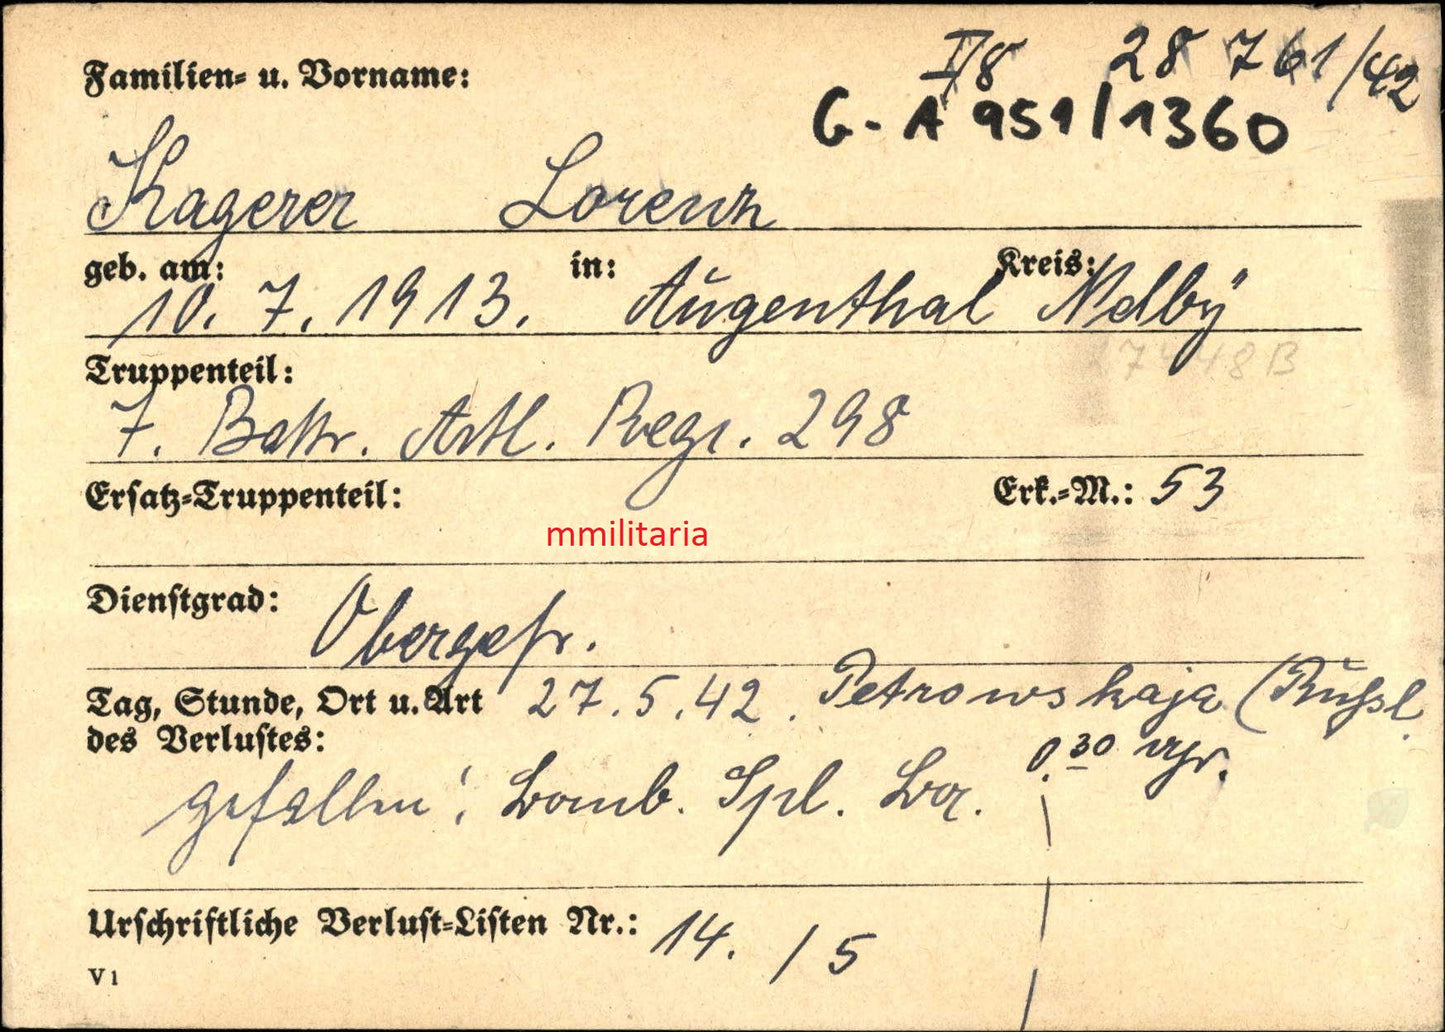 II/8 28 761/42
Familien- u. Vorname:
G-A 951/1360
Kagerer Lorenz
geb. am: in: Kreis:
10. 7. 1913. Augenthal
27 48 B
Truppenteil:
7. Battr. Artl. Regt. 298
Ersatz-Truppenteil: Erk.-M.: 53
mmilitaria
Dienstgrad:
Obergefr.
Tag, Stunde, Ort u. Art 27.5.42. Petrowskaja (Rußl.
des Verlustes: 0.30 Uhr.
gefallen; Bomb. Spl.
Urschriftliche Verlust-Listen Nr.: 14. / 5
V 1